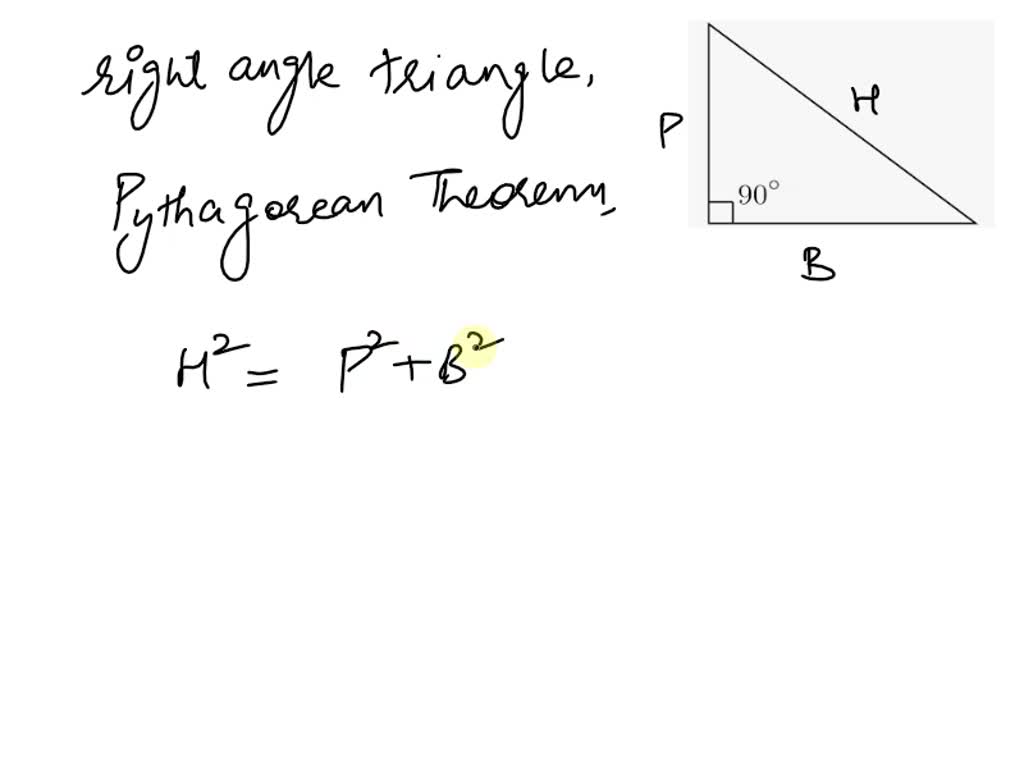 right angle triangle,
Pythagorean Theorem,
H² = P² + B²
P
H
90°
B